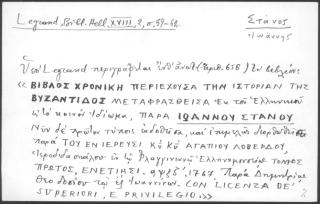 Legrand, Bibl. Hell, XVIII, 2, σ. 57-62.
Στάνος
Ἰωάννης
Ὑπὸ Legrand περιγράφεται (ἀριθ. 656) τὸ βιβλίον:
«ΒΙΒΛΟΣ ΧΡΟΝΙΚΗ ΠΕΡΙΕΧΟΥΣΑ ΤΗΝ ΙΣΤΟΡΙΑΝ ΤΗΣ
ΒΥΖΑΝΤΙΔΟΣ ΜΕΤΑΦΡΑΣΘΕΙΣΑ ἐκ τοῦ Ἑλληνικοῦ
εἰς τὸ κοινὸν ἰδίωμα, ΠΑΡΑ ΙΩΑΝΝΟΥ ΣΤΑΝΟΥ
Νῦν δὲ πρῶτον τύποις ἐκδοθεῖσα, καὶ ἐπιμελῶς διορθωθεῖσα
παρὰ ΤΟΥ ΕΝ ΙΕΡΕΥΣΙ Κῦ Κῦ ΑΓΑΠΙΟΥ ΛΟΒΕΡΔΟΥ
Ἱεροδιδασκάλου ἐν τῷ Φλαγγινιανῷ Ἑλληνομουσείῳ ΤΟΜΟΣ
ΠΡΩΤΟΣ, ΕΝΕΤΙΗΣΙ. αψξζ΄. 1767. Παρὰ Δημητρίῳ
Θεοδοσίου τῷ ἐξ Ἰωαννίνων. CON LICENZA DE'
SUPERIORI, E PRIVILEGIO.»
2